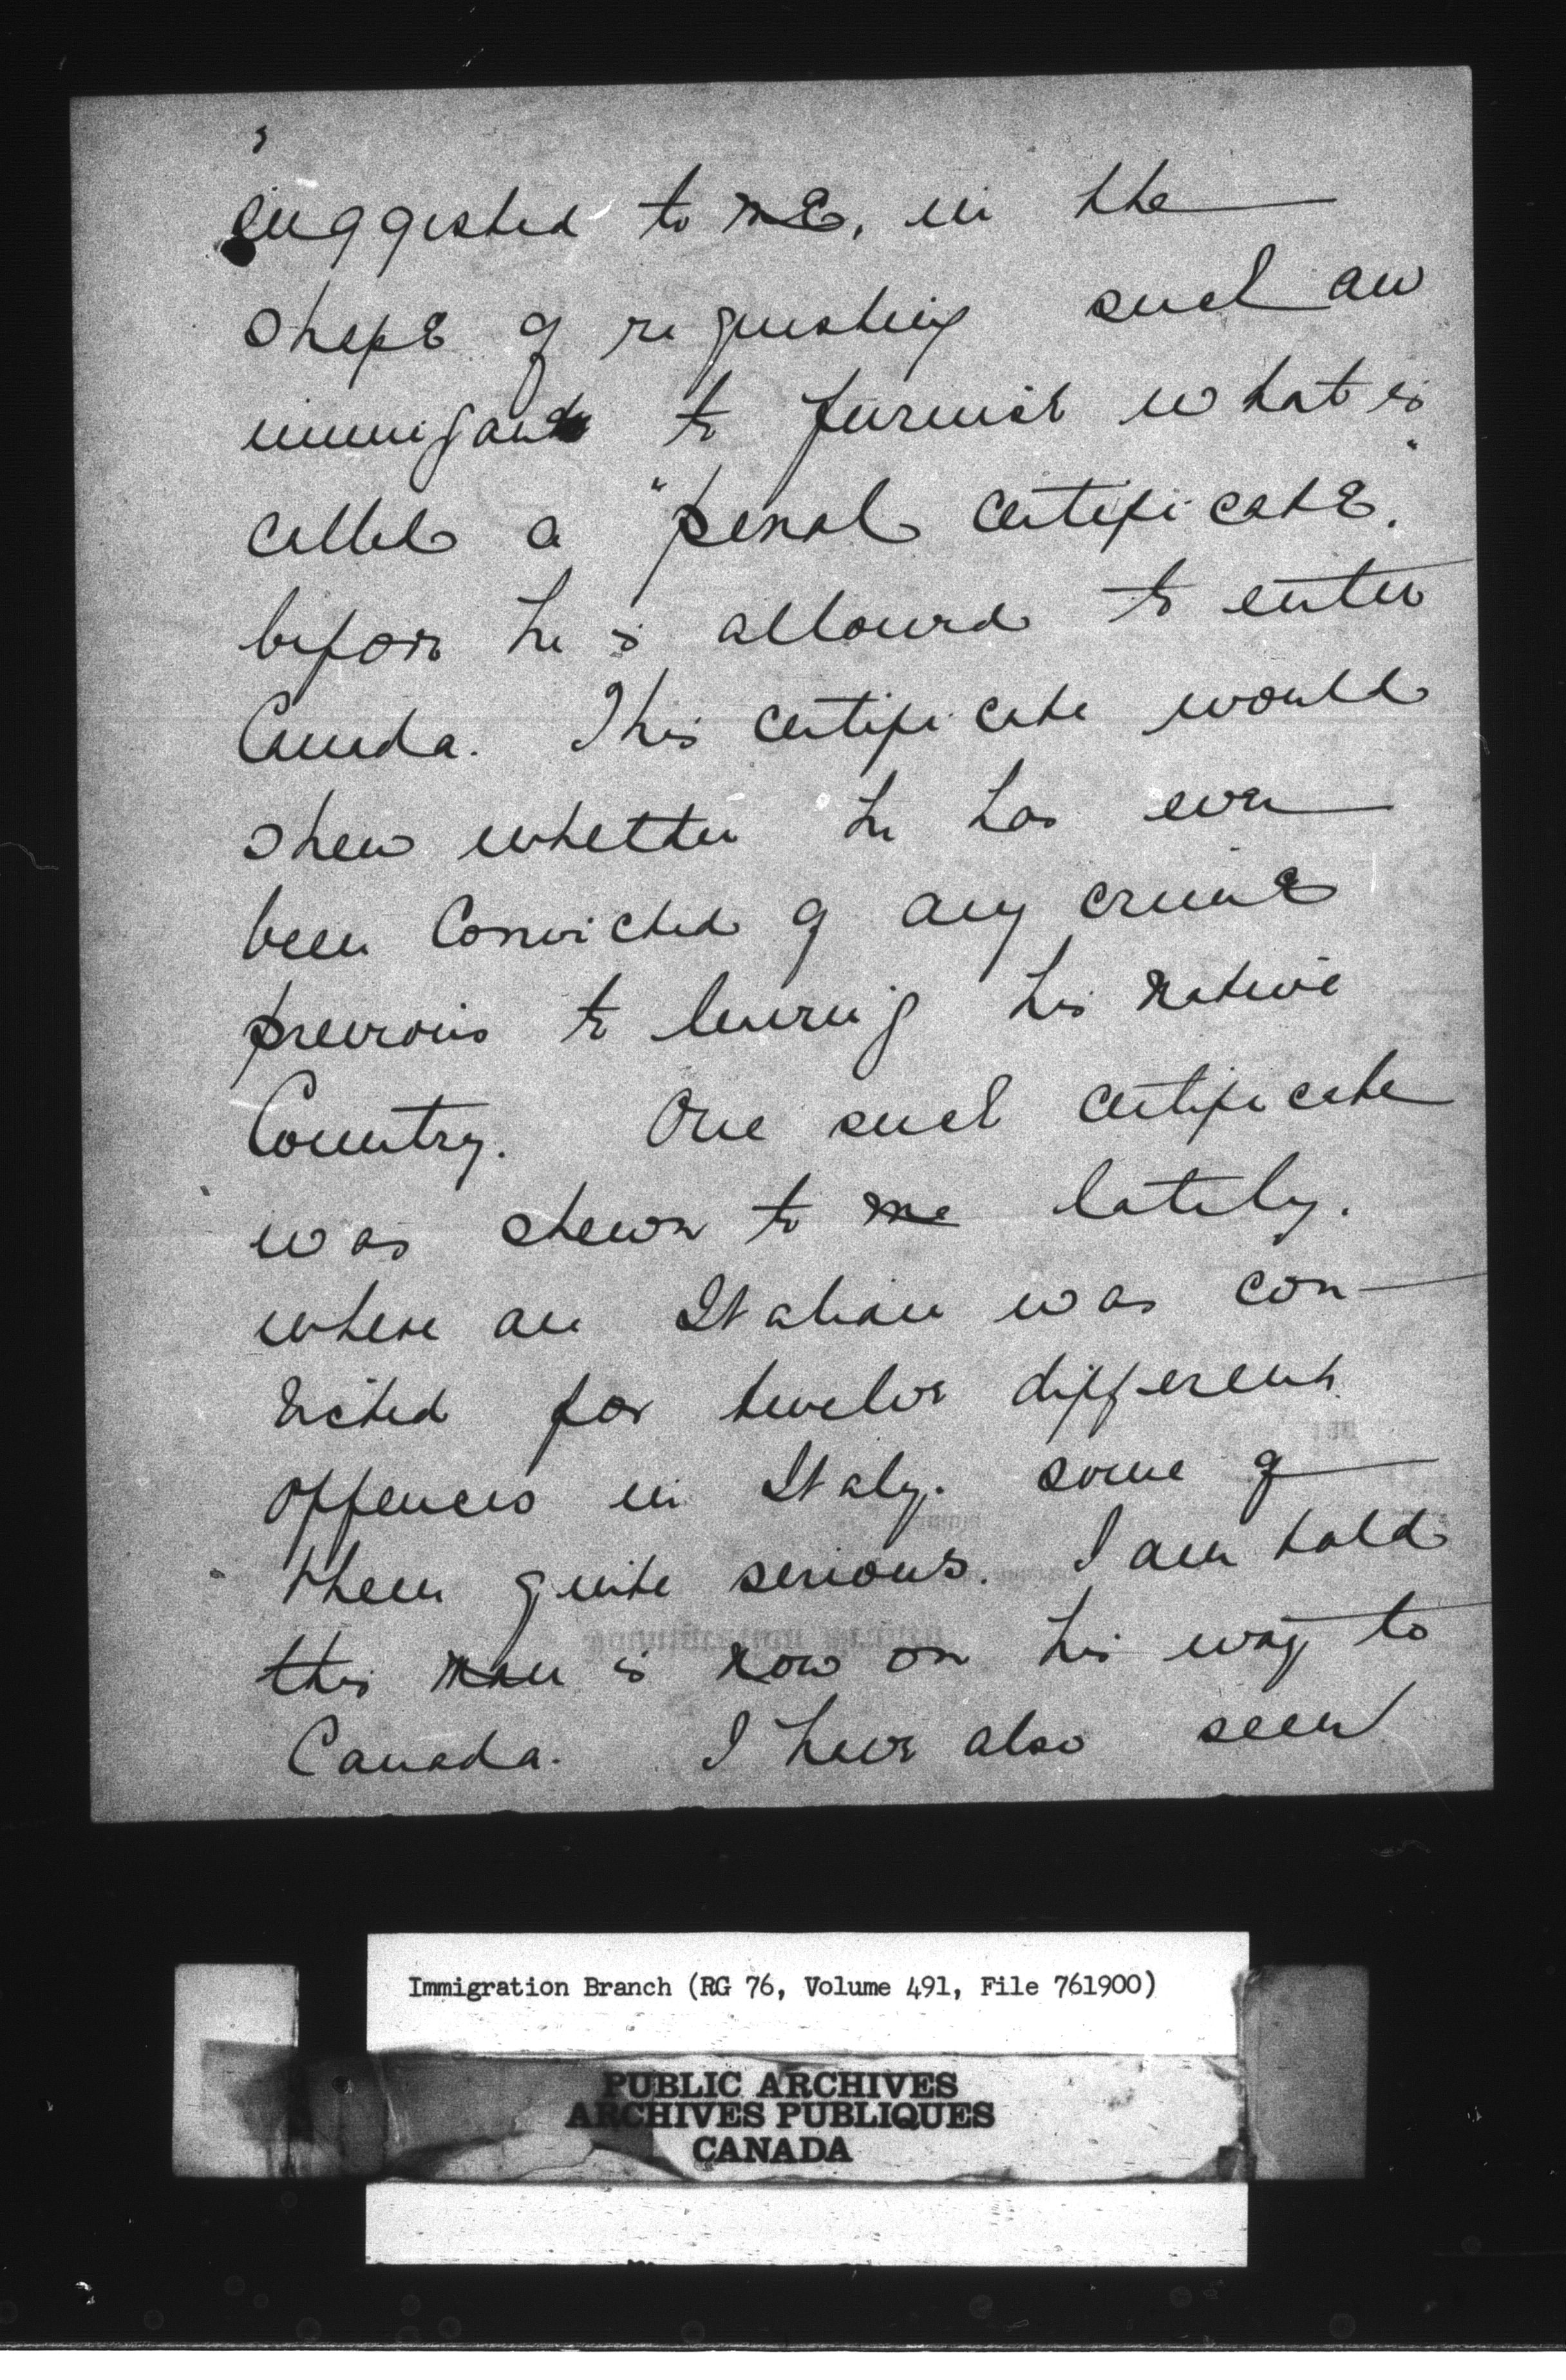 suggested to me, in the
shape of requesting such an
immigant to furnish what is
called a "penal certificate."
before he is allowed to enter
Canada. This certificate would
shew whether he has ever
been Convicted of any crime
previous to leaving his native
Country. One such certificate
was shewn to me lately.
where an Italian was con-
victed for twelve different
offences in Italy. some of
them quite serious. I am told
this man is now on his way to
Canada. I have also seen
Immigration Branch (RG 76, Volume 491, File 761900)
PUBLIC ARCHIVES
ARCHIVES PUBLIQUES
CANADA